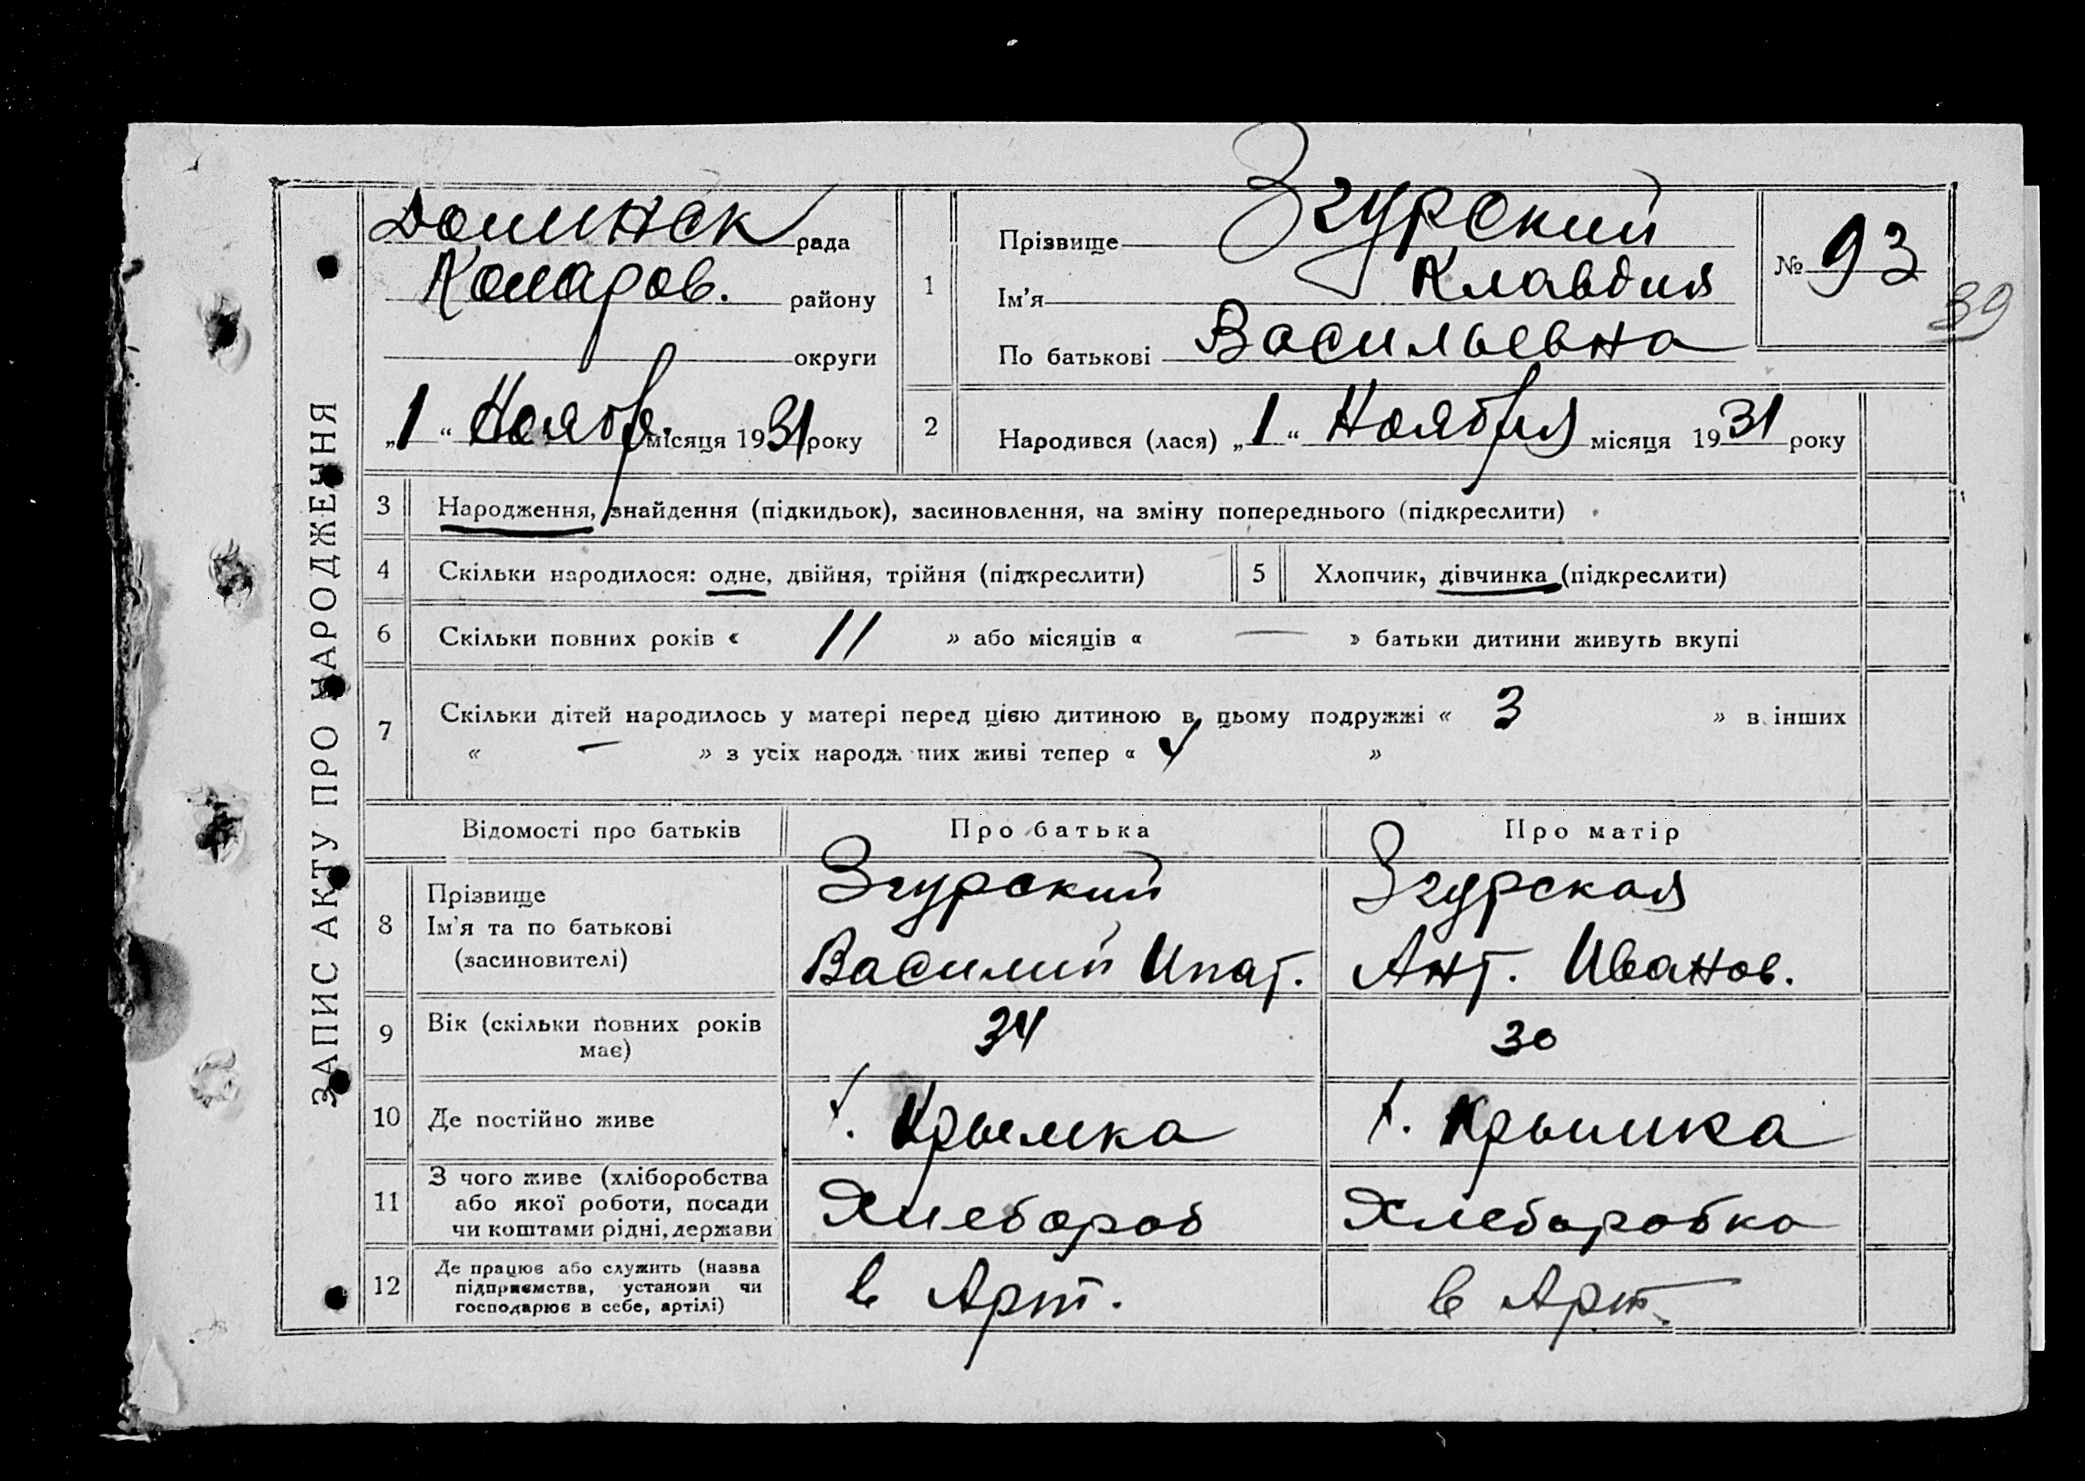 ЗАПИС АКТУ ПРО НАРОДЖЕННЯ
Долинск рада
Комаров. району
округи
„1“ Ноябр. місяця 1931 року
1
Прізвище Згурский
Ім'я Клавдия
По батькові Васильевна
№ 93
39
2 Народився (лася) „1“ Ноября місяця 1931 року
3 Народження, знайдення (підкидьок), засиновлення, на зміну попереднього (підкреслити)
4 Скільки народилося: одне, двійня, трійня (підкреслити)
5 Хлопчик, дівчинка (підкреслити)
6 Скільки повних років « 11 » або місяців « — » батьки дитини живуть вкупі
7 Скільки дітей народилось у матері перед цією дитиною в цьому подружжі « 3 » в інших
« — » з усіх народж них живі тепер « 4 »
Відомості про батьків
Про батька
Про матір
8 Прізвище
Ім'я та по батькові
(засиновителі)
Згурский
Василий Ипат.
Згурская
Ант. Иванов.
9 Вік (скільки повних років
має)
34
30
10 Де постійно живе
Крымка
Крымка
11 З чого живе (хліборобства
або якої роботи, посади
чи коштами рідні, держави
Хлебороб
Хлеборобка
12 Де працює або служить (назва
підприємства, установи чи
господарює в себе, артілі)
в Арт.
в Арт.